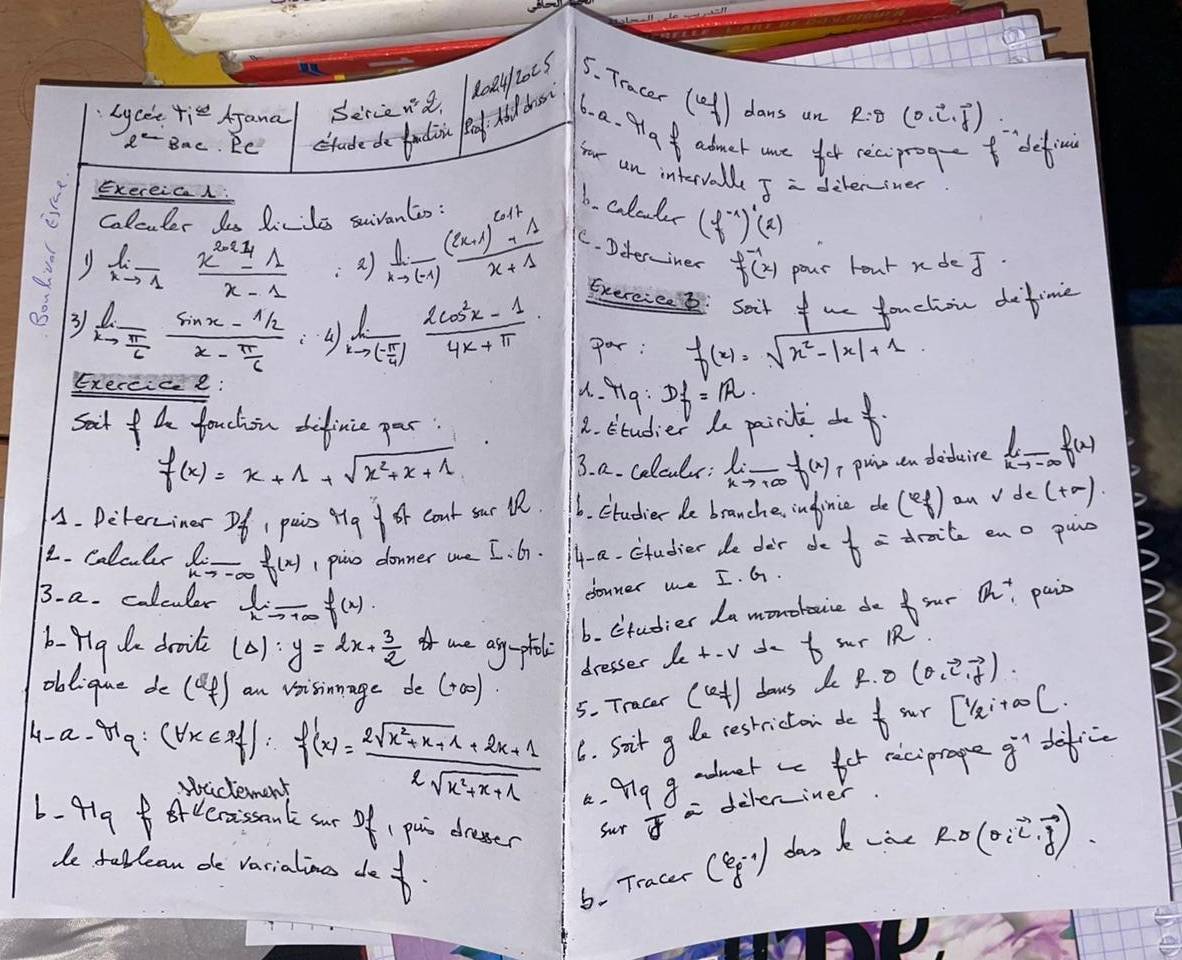 الحافي
L'ART DE
Lycée Tisd Ajana
2ème Bac. PC
Série n° 2
étude de fonction
2024/2025
Prof:
Exercice 1:
Calculer les limites suivantes:
1) lim x→1 (x^2024 - 1)/(x - 1) ; 2) lim x→(-1) ((2x+1)^2017 + 1)/(x + 1)
3) lim x→π/6 (sin x - 1/2)/(x - π/6) ; 4) lim x→(-π/4) (2cos²x - 1)/(4x + π).
Exercice 2:
Soit f la fonction définie par :
f(x) = x + 1 + √(x² + x + 1)
1 - Déterminer Df, puis Mq f st cont sur IR.
2 - calculer lim x→-∞ f(x), puis donner une I.G.
3-a- calculer lim x→+∞ f(x).
b- Mq la droite (Δ): y = 2x + 3/2 st une asymptote
oblique de (Cf) au voisinnage de (+∞).
4-a- Mq: (∀x ∈ Df): f'(x) = (2√(x² + x + 1) + 2x + 1)/(2√(x² + x + 1))
strictement
b- Mq f st croissante sur Df, puis dresser
le tableau de variations de f.
5- Tracer (Cf) dans un R.O (o,i⃗,j⃗).
6-a- Mq f admet une fct réciproque f⁻¹ définie
sur un intervalle J à déterminer.
b- calculer (f⁻¹)'(2)
c- Déterminer f⁻¹(x) pour tout x de J.
Exercice 3: Soit f une fonction définie
par : f(x) = √(x² - |x| + 1).
1- Mq: Df = IR.
2- étudier la pairité de f.
3-a- calculer: lim x→+∞ f(x), puis en déduire lim x→-∞ f(x)
b- étudier la branche infinie de (Cf) au v de (+∞).
4-a- étudier la dér de f à droite en 0 puis
donner une I.G.
b- étudier la monotonie de f sur IR⁺, puis
dresser le t-v de f sur IR.
5- Tracer (Cf) dans le R.O (o,i⃗,j⃗).
6. Soit g la restriction de f sur [1/2;+∞[.
a- Mq g admet une fct réciproque g⁻¹ définie
sur J à déterminer.
b- Tracer (Cg⁻¹) dans le même R.O (o,i⃗,j⃗).